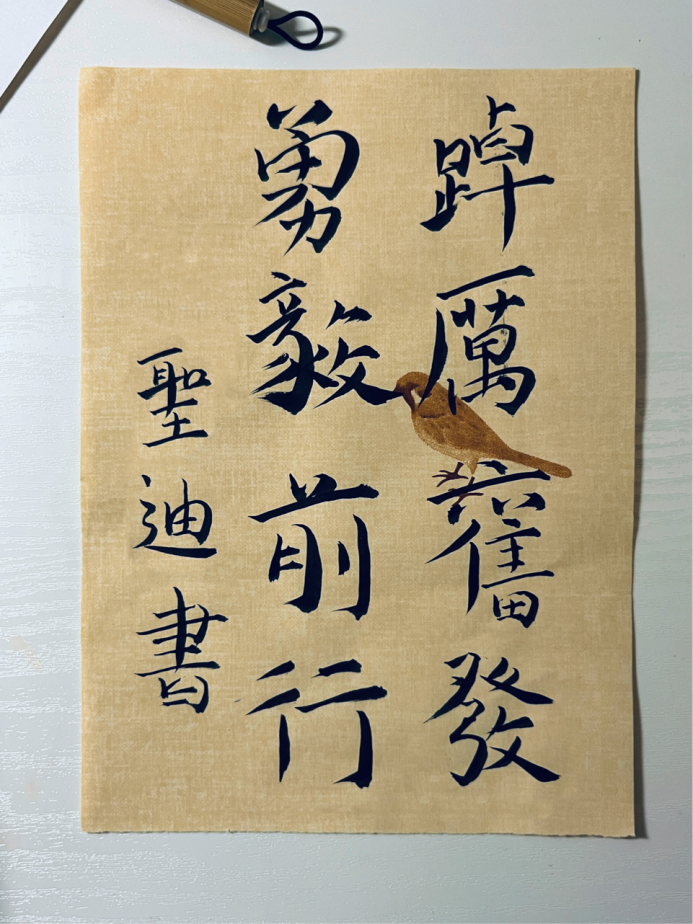 踔厲奮發
勇毅前行
聖迪書